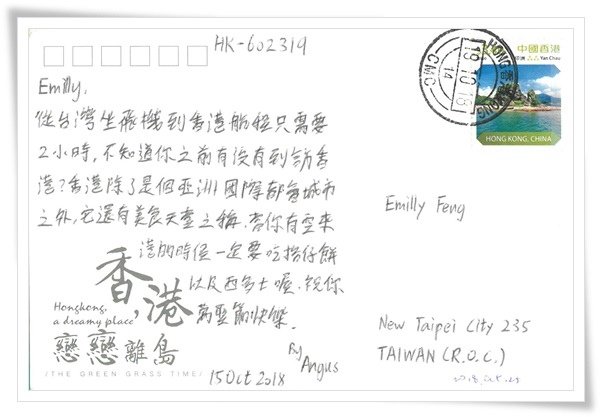 HK-602319
Emilly,
從台灣坐飛機到香港航程只需要
2小時,不知道你之前有沒有到訪香
港?香港除了是個亞洲國際都會城市
之外,它還有美食天堂之稱.若你有空來
港的時侯一定要吃格仔餅
以及西多士喔.祝你
萬聖節快樂.
By Angus
15 Oct 2018
香,港
Hongkong,
a dreamy place
戀戀離島
/THE GREEN GRASS TIME/
中國香港
Yan Chau
HONG KONG, CHINA
HONG KONG 香港
19.10.18
14
CMC
Emilly Feng
New Taipei City 235
TAIWAN (R.O.C.)